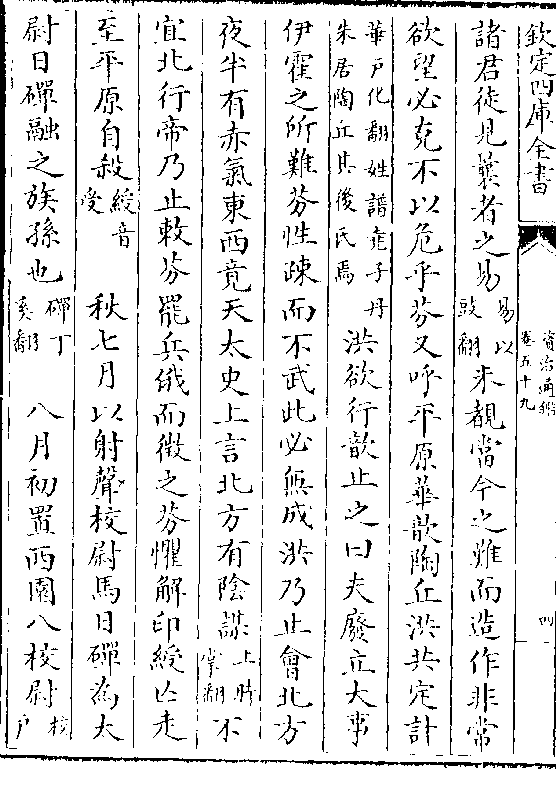 欽定四庫全書
資治通鑑
卷五十九
四
諸君徒見曩者之易易以豉翻未覩當今之難而造作非常
欲望必克不以危乎芬又呼平原華歆陶丘洪共定計
華戶化翻姓譜堯子丹朱居陶丘其後氏焉洪欲行歆止之曰夫廢立大事
伊霍之所難芬性疎而不武此必無成洪乃止會北方
夜半有赤氣東西竟天太史上言北方有陰謀上時掌翻不
宜北行帝乃止敕芬罷兵俄而徵之芬懼解印綬亡走
至平原自殺綬音受秋七月以射聲校尉馬日磾為太
尉日磾融之族孫也磾丁奚翻八月初置西園八校尉校戶